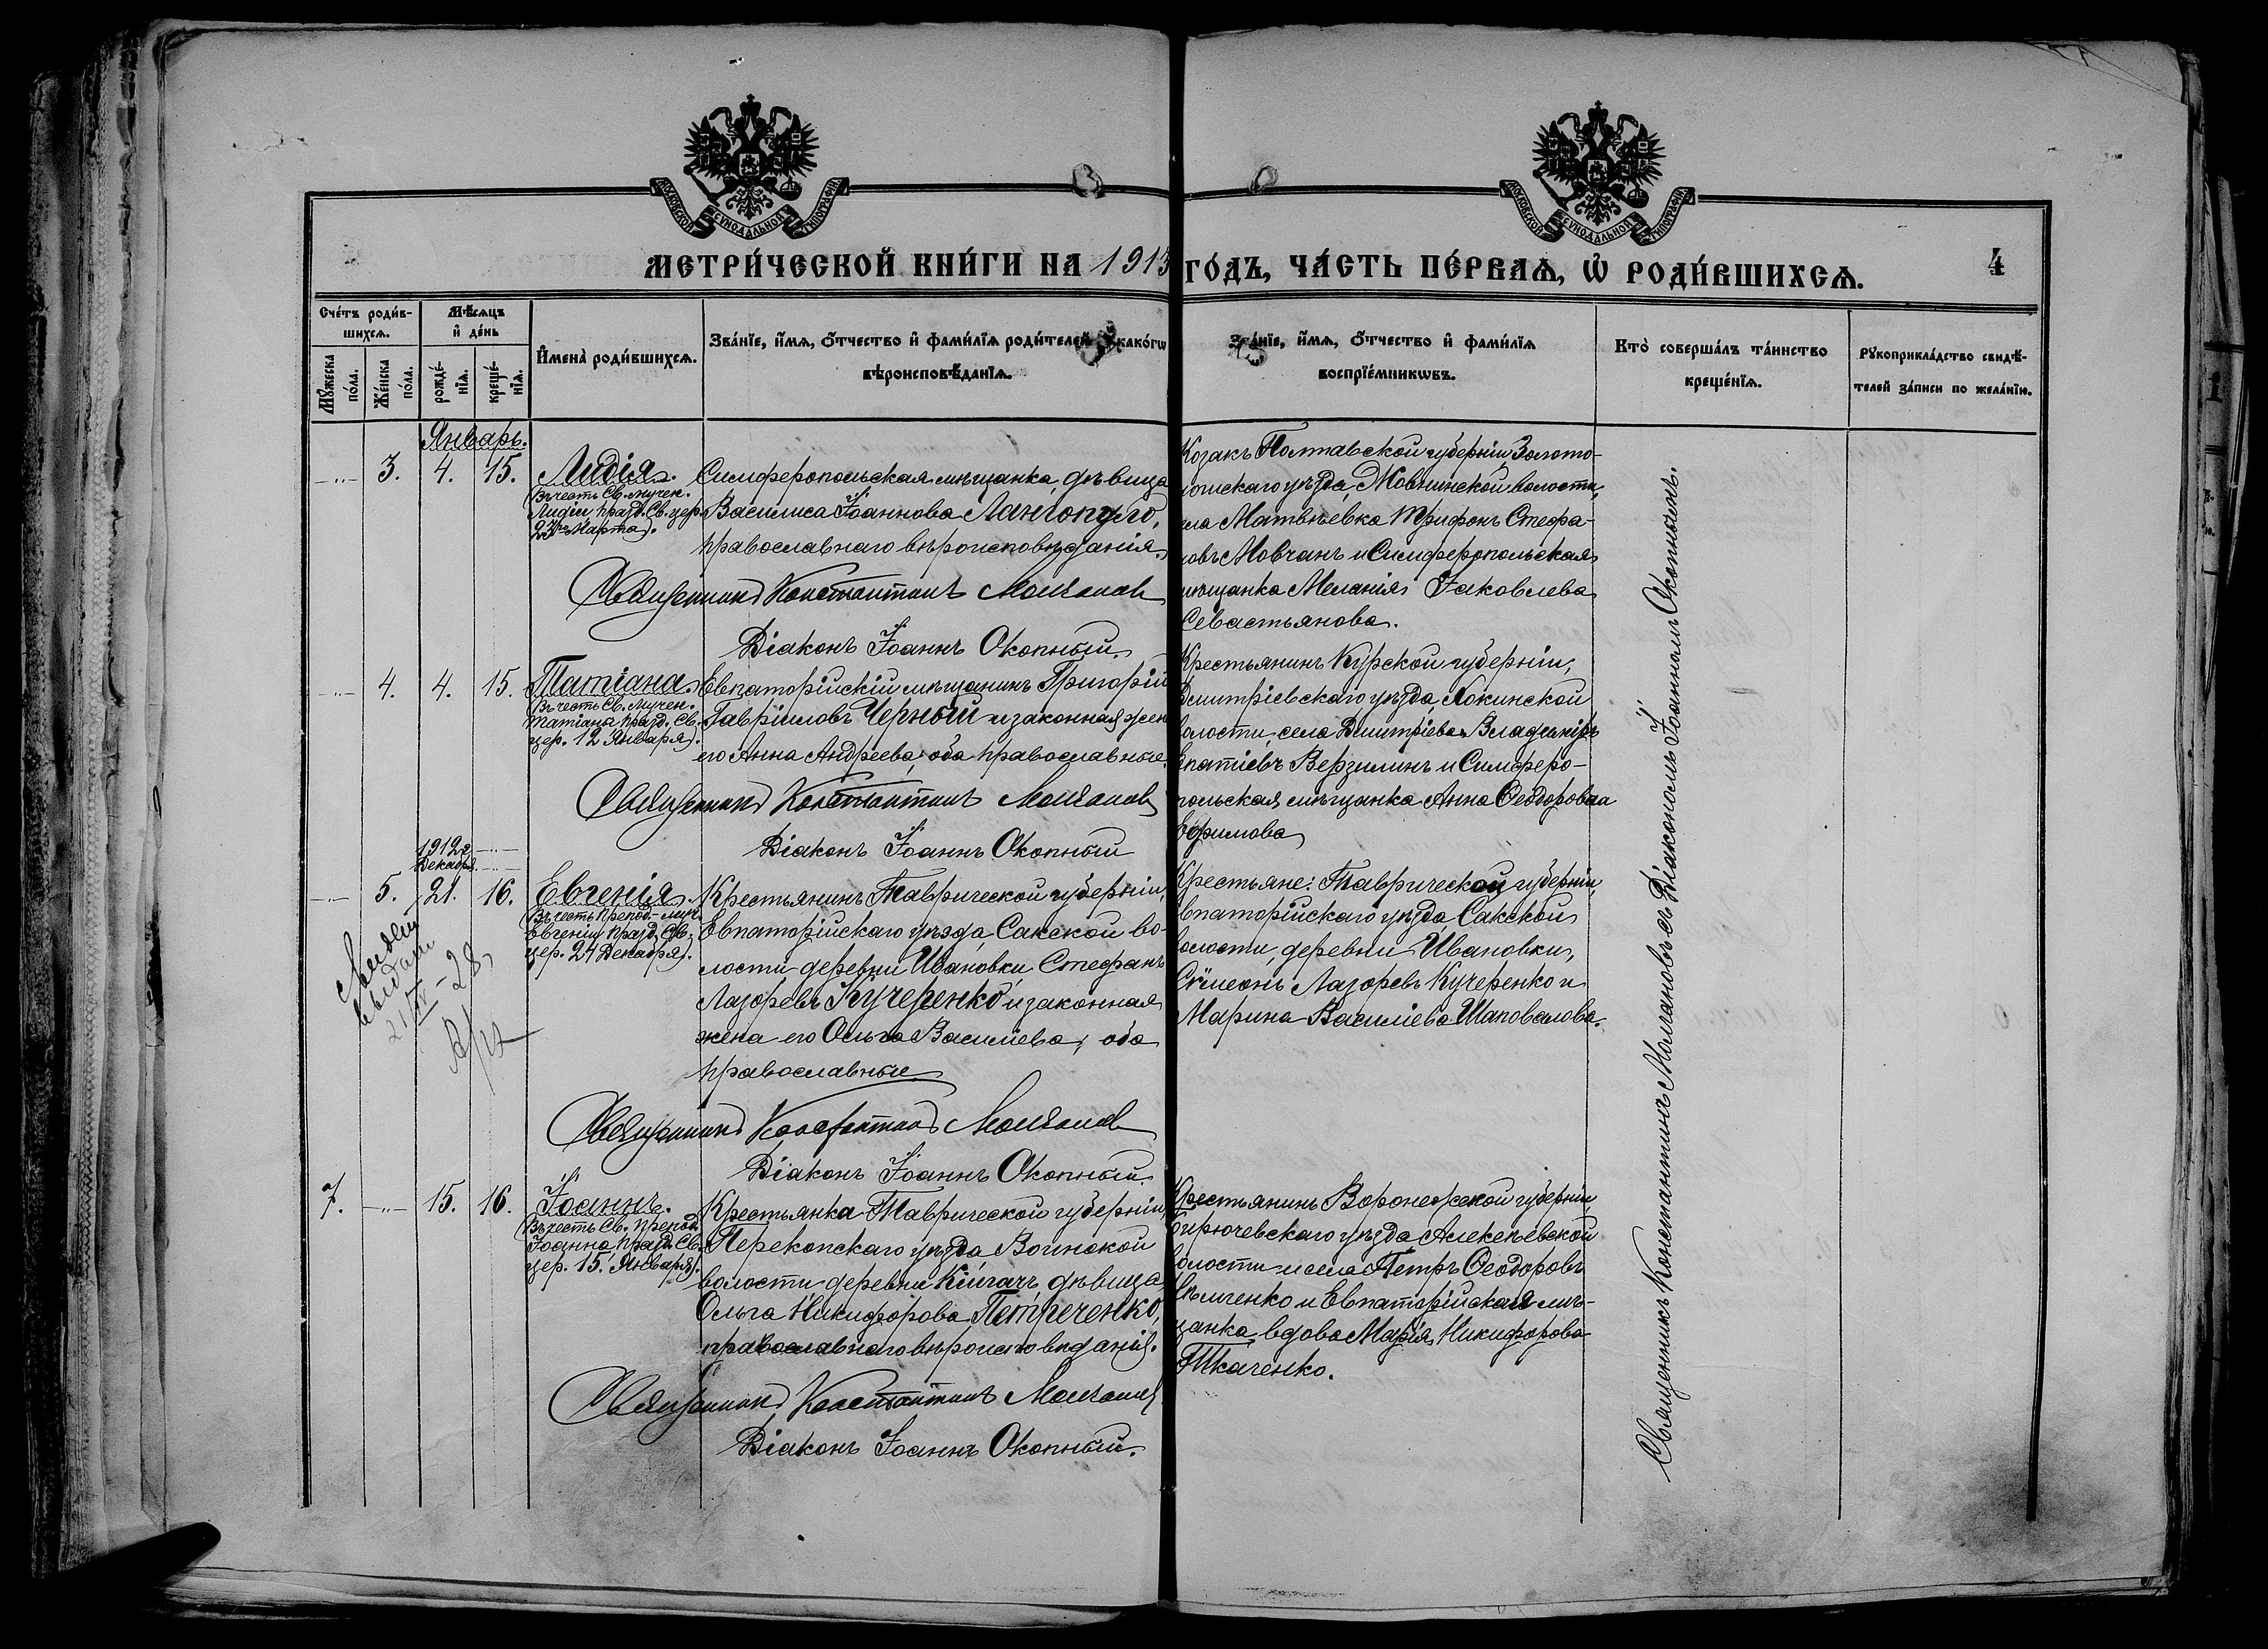 МОСКОВСКОЙ СѴНОДАЛЬНОЙ ТИПОГРАФІИ
МОСКОВСКОЙ СѴНОДАЛЬНОЙ ТИПОГРАФІИ
МЕТРИ́ЧЕСКОЙ КНИ́ГИ НА 1913 ГО́ДЪ, ЧА́СТЬ ПЕ́РВАѦ, Ѡ҆ РОДИ́ВШИХСѦ.
4
Сче́тъ роди́в-
шихсѧ.
Мѣ́сѧцъ
и҆ де́нь
Мꙋ́жеска
по́ла.
Же́нска
по́ла.
рожде́-
нїѧ.
креще́-
нїѧ.
И҆мена̀ роди́вшихсѧ.
Зва́нїе, и҆́мѧ, ѻ҆́тчество и҆ фами́лїѧ роди́телей, и҆ како́гѡ
вѣроисповѣ́данїѧ.
Зва́нїе, и҆́мѧ, ѻ҆́тчество и҆ фами́лїѧ
воспрїе́мникѡвъ.
Кто̀ соверша́лъ та́инство
креще́нїѧ.
Рꙋкоприкла́дство свидѣ́-
телей за́писи по жела́нїю.
Январь.
3. 4. 15. Лидія.
(Въ честь Св. мучен.
Лидіи празд. Св. цер.
23го Марта).
Симферопольская мѣщанка, дѣвица
Василиса Іоаннова Лангопуло,
православнаго вѣроисповѣданія.
Священникъ Константинъ Молчановъ
Діаконъ Іоаннъ Окопный.
Козакъ Полтавской губерніи, Золото-
ношскаго уѣзда, Мовчинской волости,
села Матвѣевка Трифонъ Стефа-
новъ Мовчанъ и Симферопольская
мѣщанка Меланія Іаковлева
Севастьянова.
4. 4. 15. Татіана.
(Въ честь Св. мучен.
Татіаны празд. Св.
цер. 12 Января).
Евпаторійскій мѣщанинъ Григорій
Гавріиловъ Черный и законная жена
его Анна Андреева, оба православные.
Священникъ Константинъ Молчановъ
Діаконъ Іоаннъ Окопный
Крестьянинъ Курской губерніи,
Дмитріевскаго уѣзда, Хокинской
волости, села Дмитріева Владиміръ
Ипатіевъ Верзилинъ и Симферо-
польская мѣщанка Анна Ѳеодоровна
Ефимова
1912 г.
Декабря.
5. 21. 16. Евгенія.
(Въ честь препод.-муч.
Евгеніи празд. Св.
цер. 24 Декабря).
выдан
21/IV-28
Крестьянинъ Таврической губерніи,
Евпаторійскаго уѣзда, Сакской во-
лости деревни Ивановки Стефанъ
Лазоревъ Кучеренко и законная
жена его Ольга Василіева, оба
православные.
Священникъ Константинъ Молчановъ
Діаконъ Іоаннъ Окопный.
Крестьяне: Таврической губерніи,
Евпаторійскаго уѣзда Сакской
волости, деревни Ивановки,
Сѷмеонъ Лазоревъ Кучеренко и
Марина Василіева Шаповалова.
7. 15. 16. Іоаннъ.
(Въ честь Св. препод.
Іоанна, празд. Св.
цер. 15. Января).
Крестьянка Таврической губерніи,
Перекопскаго уѣзда Воинской
волости деревни Кіягачъ, дѣвица
Ольга Никифорова Петриченко,
православнаго вѣроисповѣданія.
Священникъ Константинъ Молчановъ
Діаконъ Іоаннъ Окопный.
Крестьянинъ Воронежской губерніи,
Бирючевскаго уѣзда Алексѣевской
волости и села Петръ Ѳеодоровъ
и Евпаторійская мѣ-
щанка, вдова Марія Никифорова
Ткаченко.
Священникъ Константинъ Молчановъ съ Діакономъ Іоанномъ Окопнымъ.